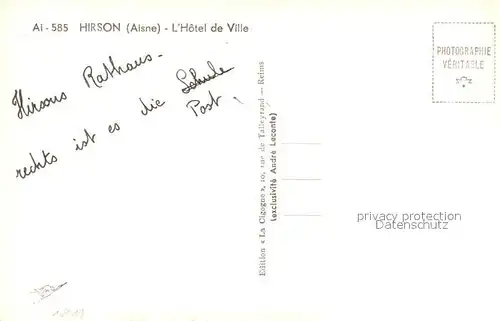 Ai - 585 HIRSON (Aisne) - L'Hôtel de Ville
PHOTOGRAPHIE
VÉRITABLE
Hirsons Rathaus -
rechts ist es die Schule
Post!
Edition « La Cigogne », 10, rue de Talleyrand — Reims
(exclusivité André Leconte)
privacy protection
Datenschutz